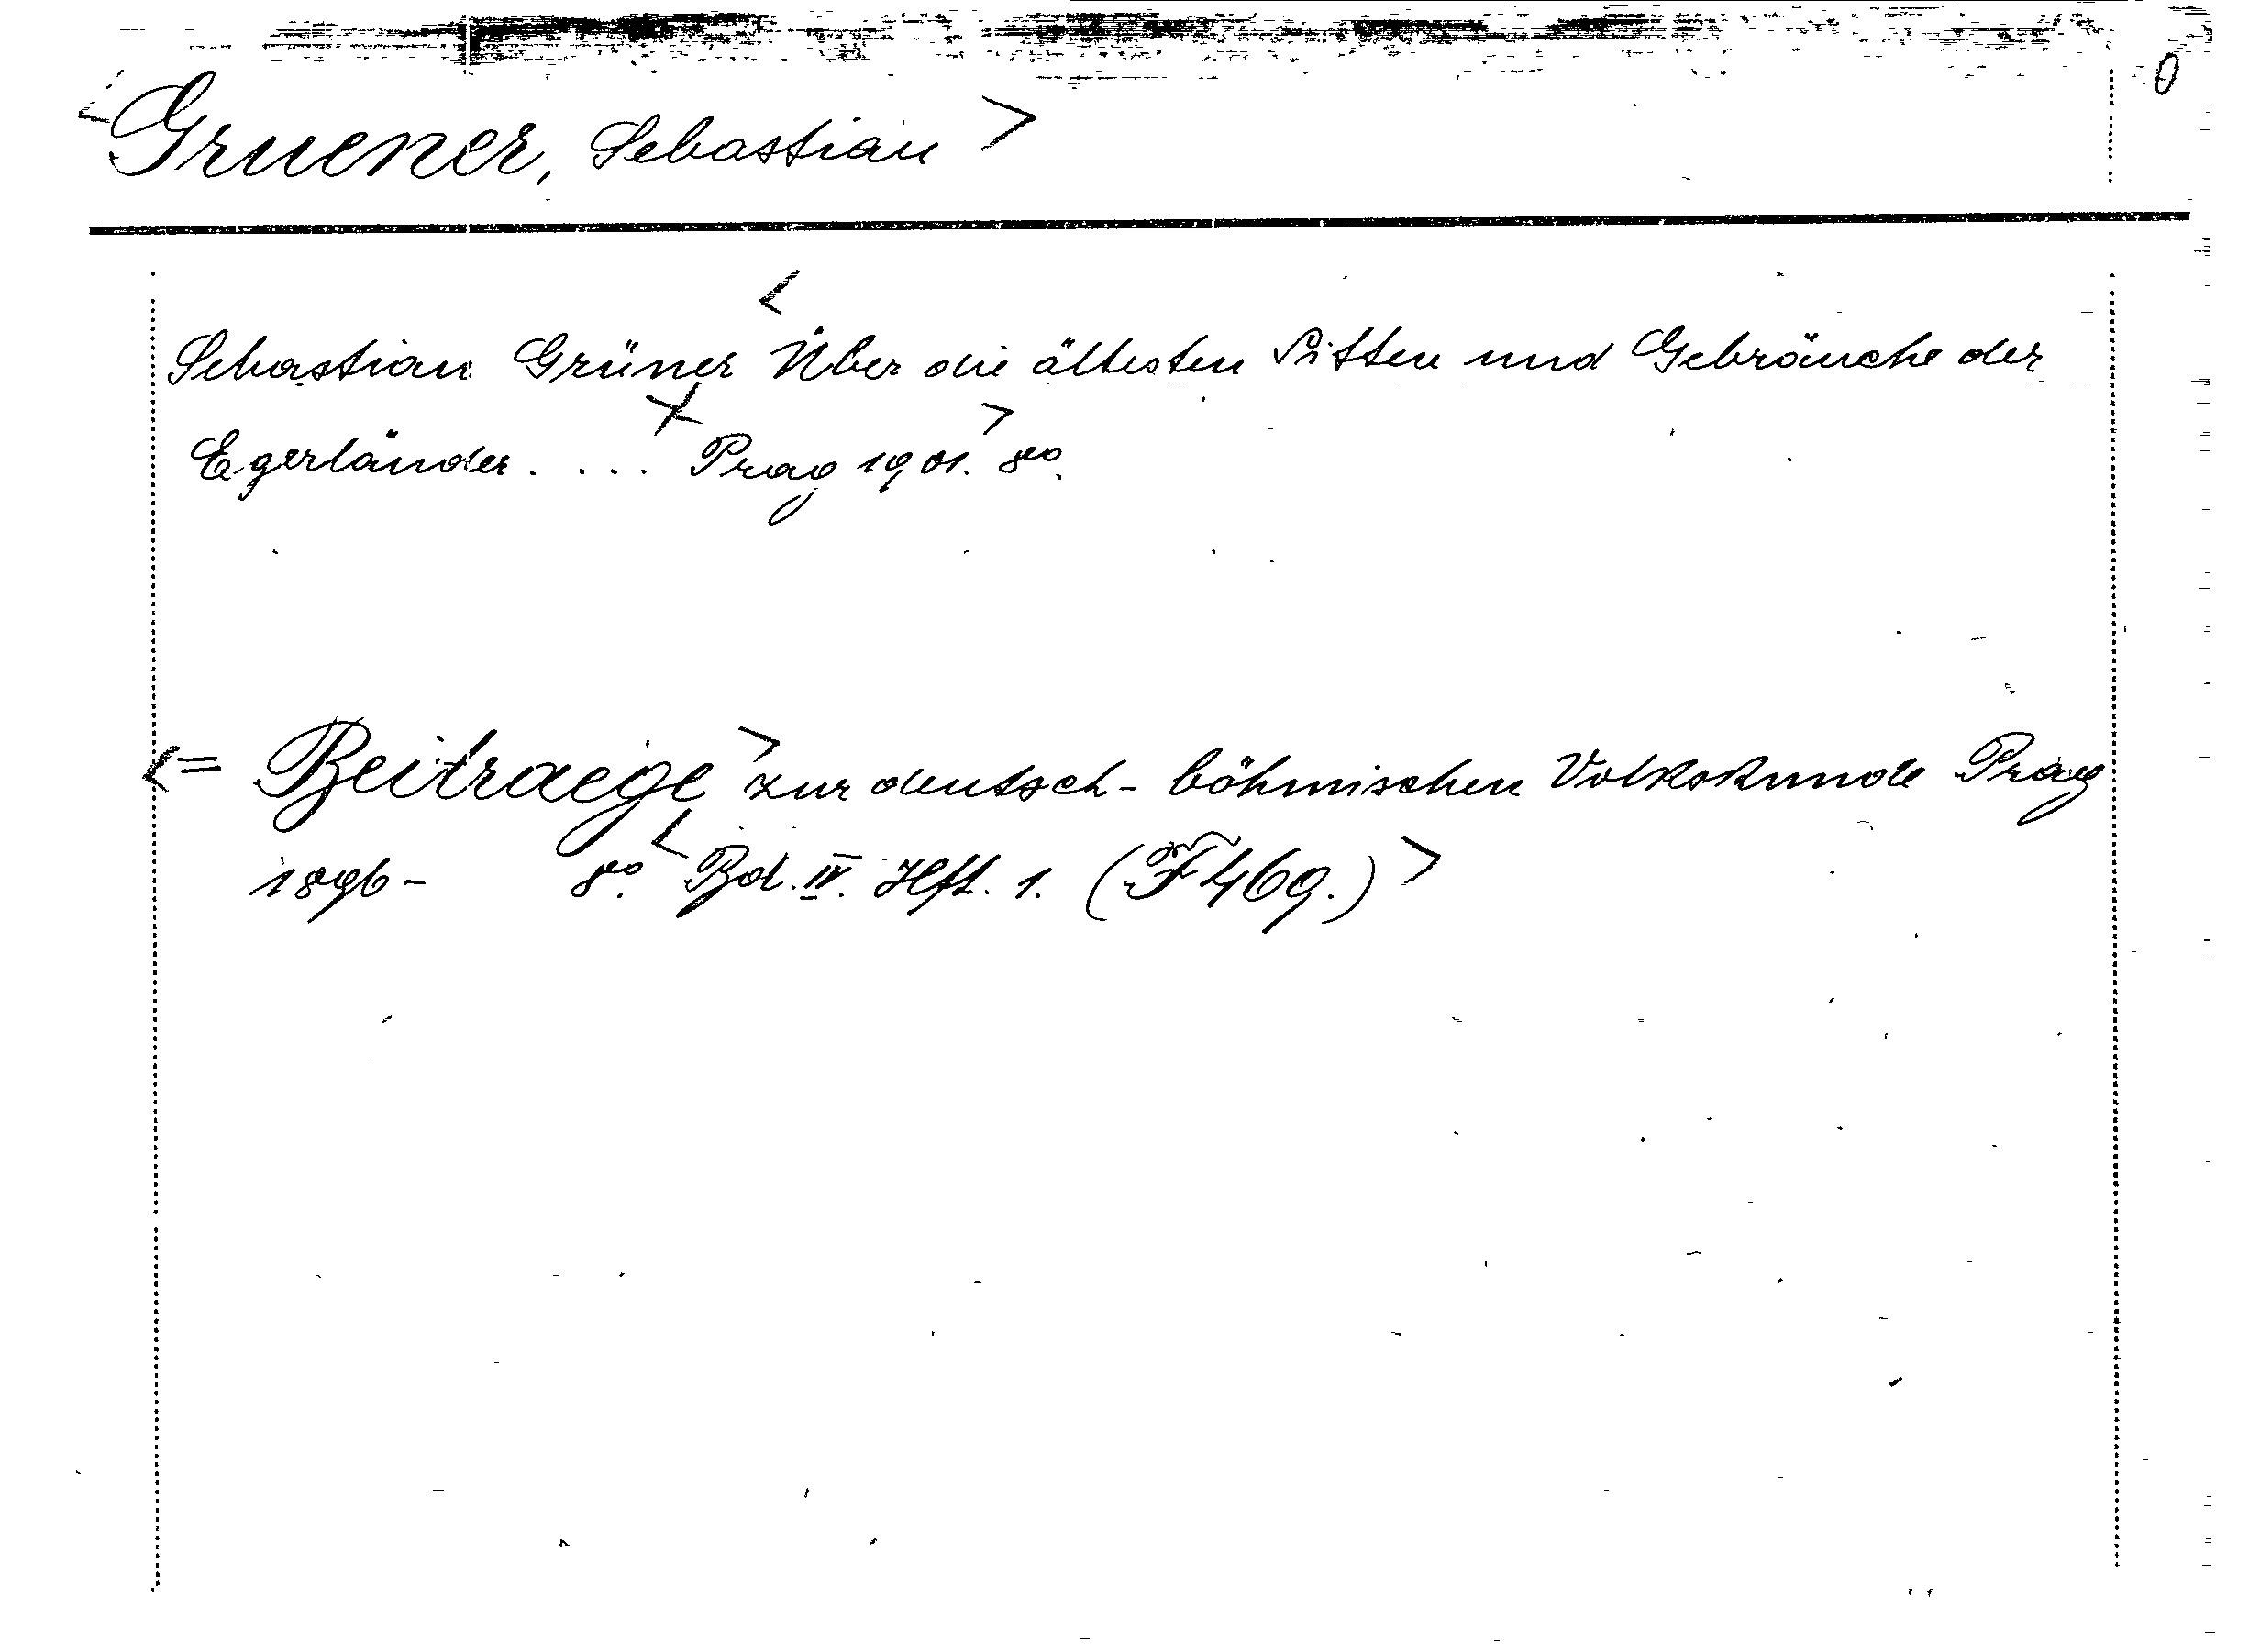 <Gruener, Sebastian>
0
Sebastian Grüner <Über die ältesten Sitten und Gebräuche der
Egerländer.... Prag 1901.> 8°.
<= Beitraege> zur deutsch-böhmischen Volkskunde Prag
1896- 8°. <Bd. IV. Hft. 1. (F 469.)>